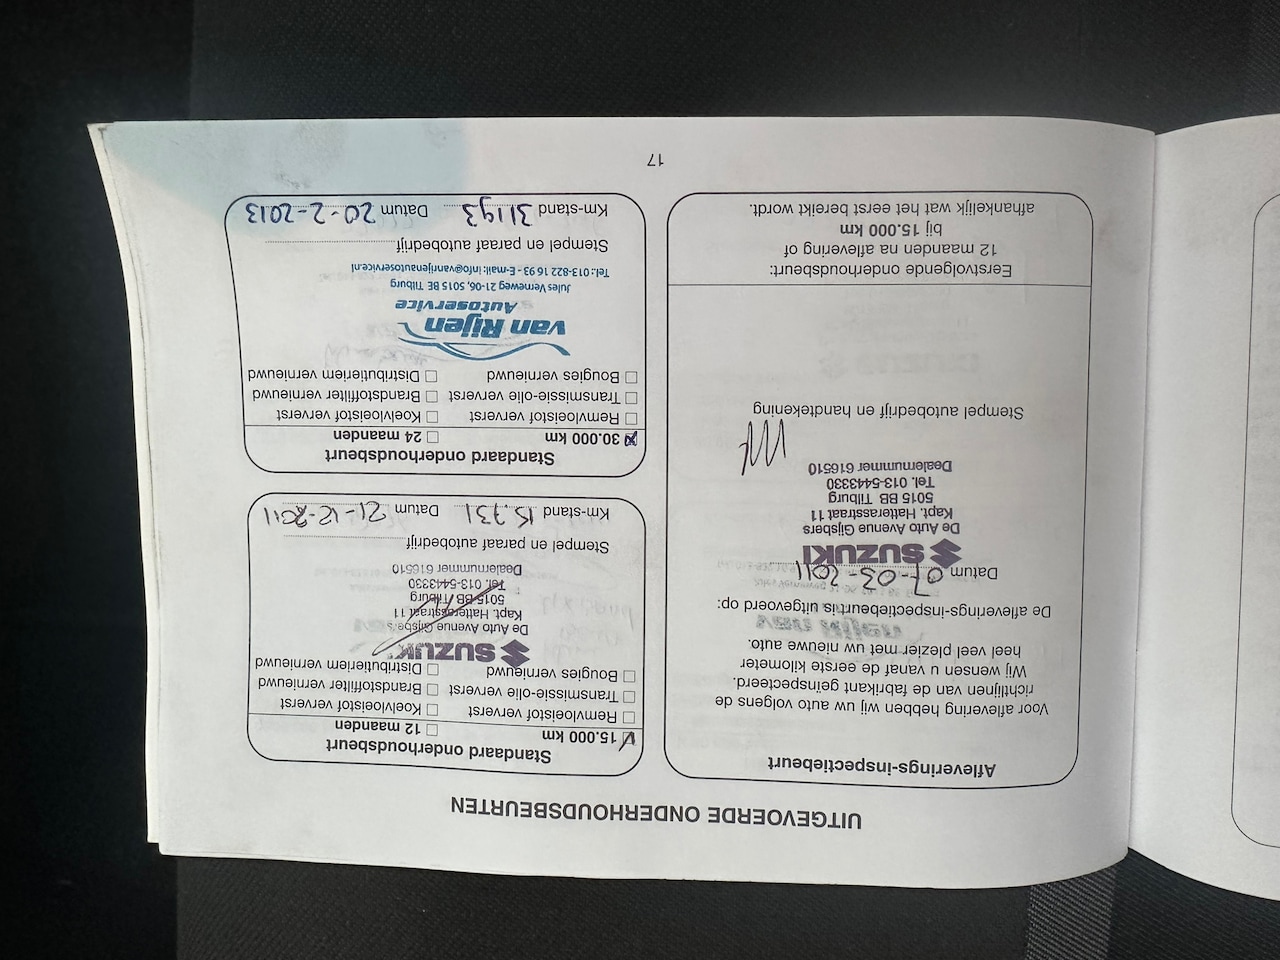 UITGEVOERDE ONDERHOUDSBEURTEN
Afleverings-inspectiebeurt
Voor aflevering hebben wij uw auto volgens de
richtlijnen van de fabrikant geïnspecteerd.
Wij wensen u vanaf de eerste kilometer
heel veel plezier met uw nieuwe auto.
De aflevering-inspectiebeurt is uitgevoerd op:
Datum 07-03-2011
SUZUKI
De Auto Avenue Gijsbers
Kapt. Hatterasstraat 11
5015 BB Tilburg
Tel. 013-5443330
Dealernummer 616510
Stempel autobedrijf en handtekening
Eerstvolgende onderhoudsbeurt:
12 maanden na aflevering of
bij 15.000 km
afhankelijk wat het eerst bereikt wordt.
Standaard onderhoudsbeurt
15.000 km 12 maanden
Remvloeistof ververst Koelvloeistof ververst
Transmissie-olie ververst Brandstoffilter vernieuwd
Bougies vernieuwd Distributieriem vernieuwd
SUZUKI
De Auto Avenue Gijsbers
Kapt. Hatterasstraat 11
5015 BB Tilburg
Tel. 013-5443330
Dealernummer 616510
Stempel en paraaf autobedrijf
Km-stand 15.731 Datum 21-12-2011
Standaard onderhoudsbeurt
30.000 km 24 maanden
Remvloeistof ververst Koelvloeistof ververst
Transmissie-olie ververst Brandstoffilter vernieuwd
Bougies vernieuwd Distributieriem vernieuwd
van Rijen
Autoservice
Jules Verneweg 21-06, 5015 BE Tilburg
Tel.: 013-822 16 93 - E-mail: info@vanrijenautoservice.nl
Stempel en paraaf autobedrijf
Km-stand 31193 Datum 20-2-2013
17